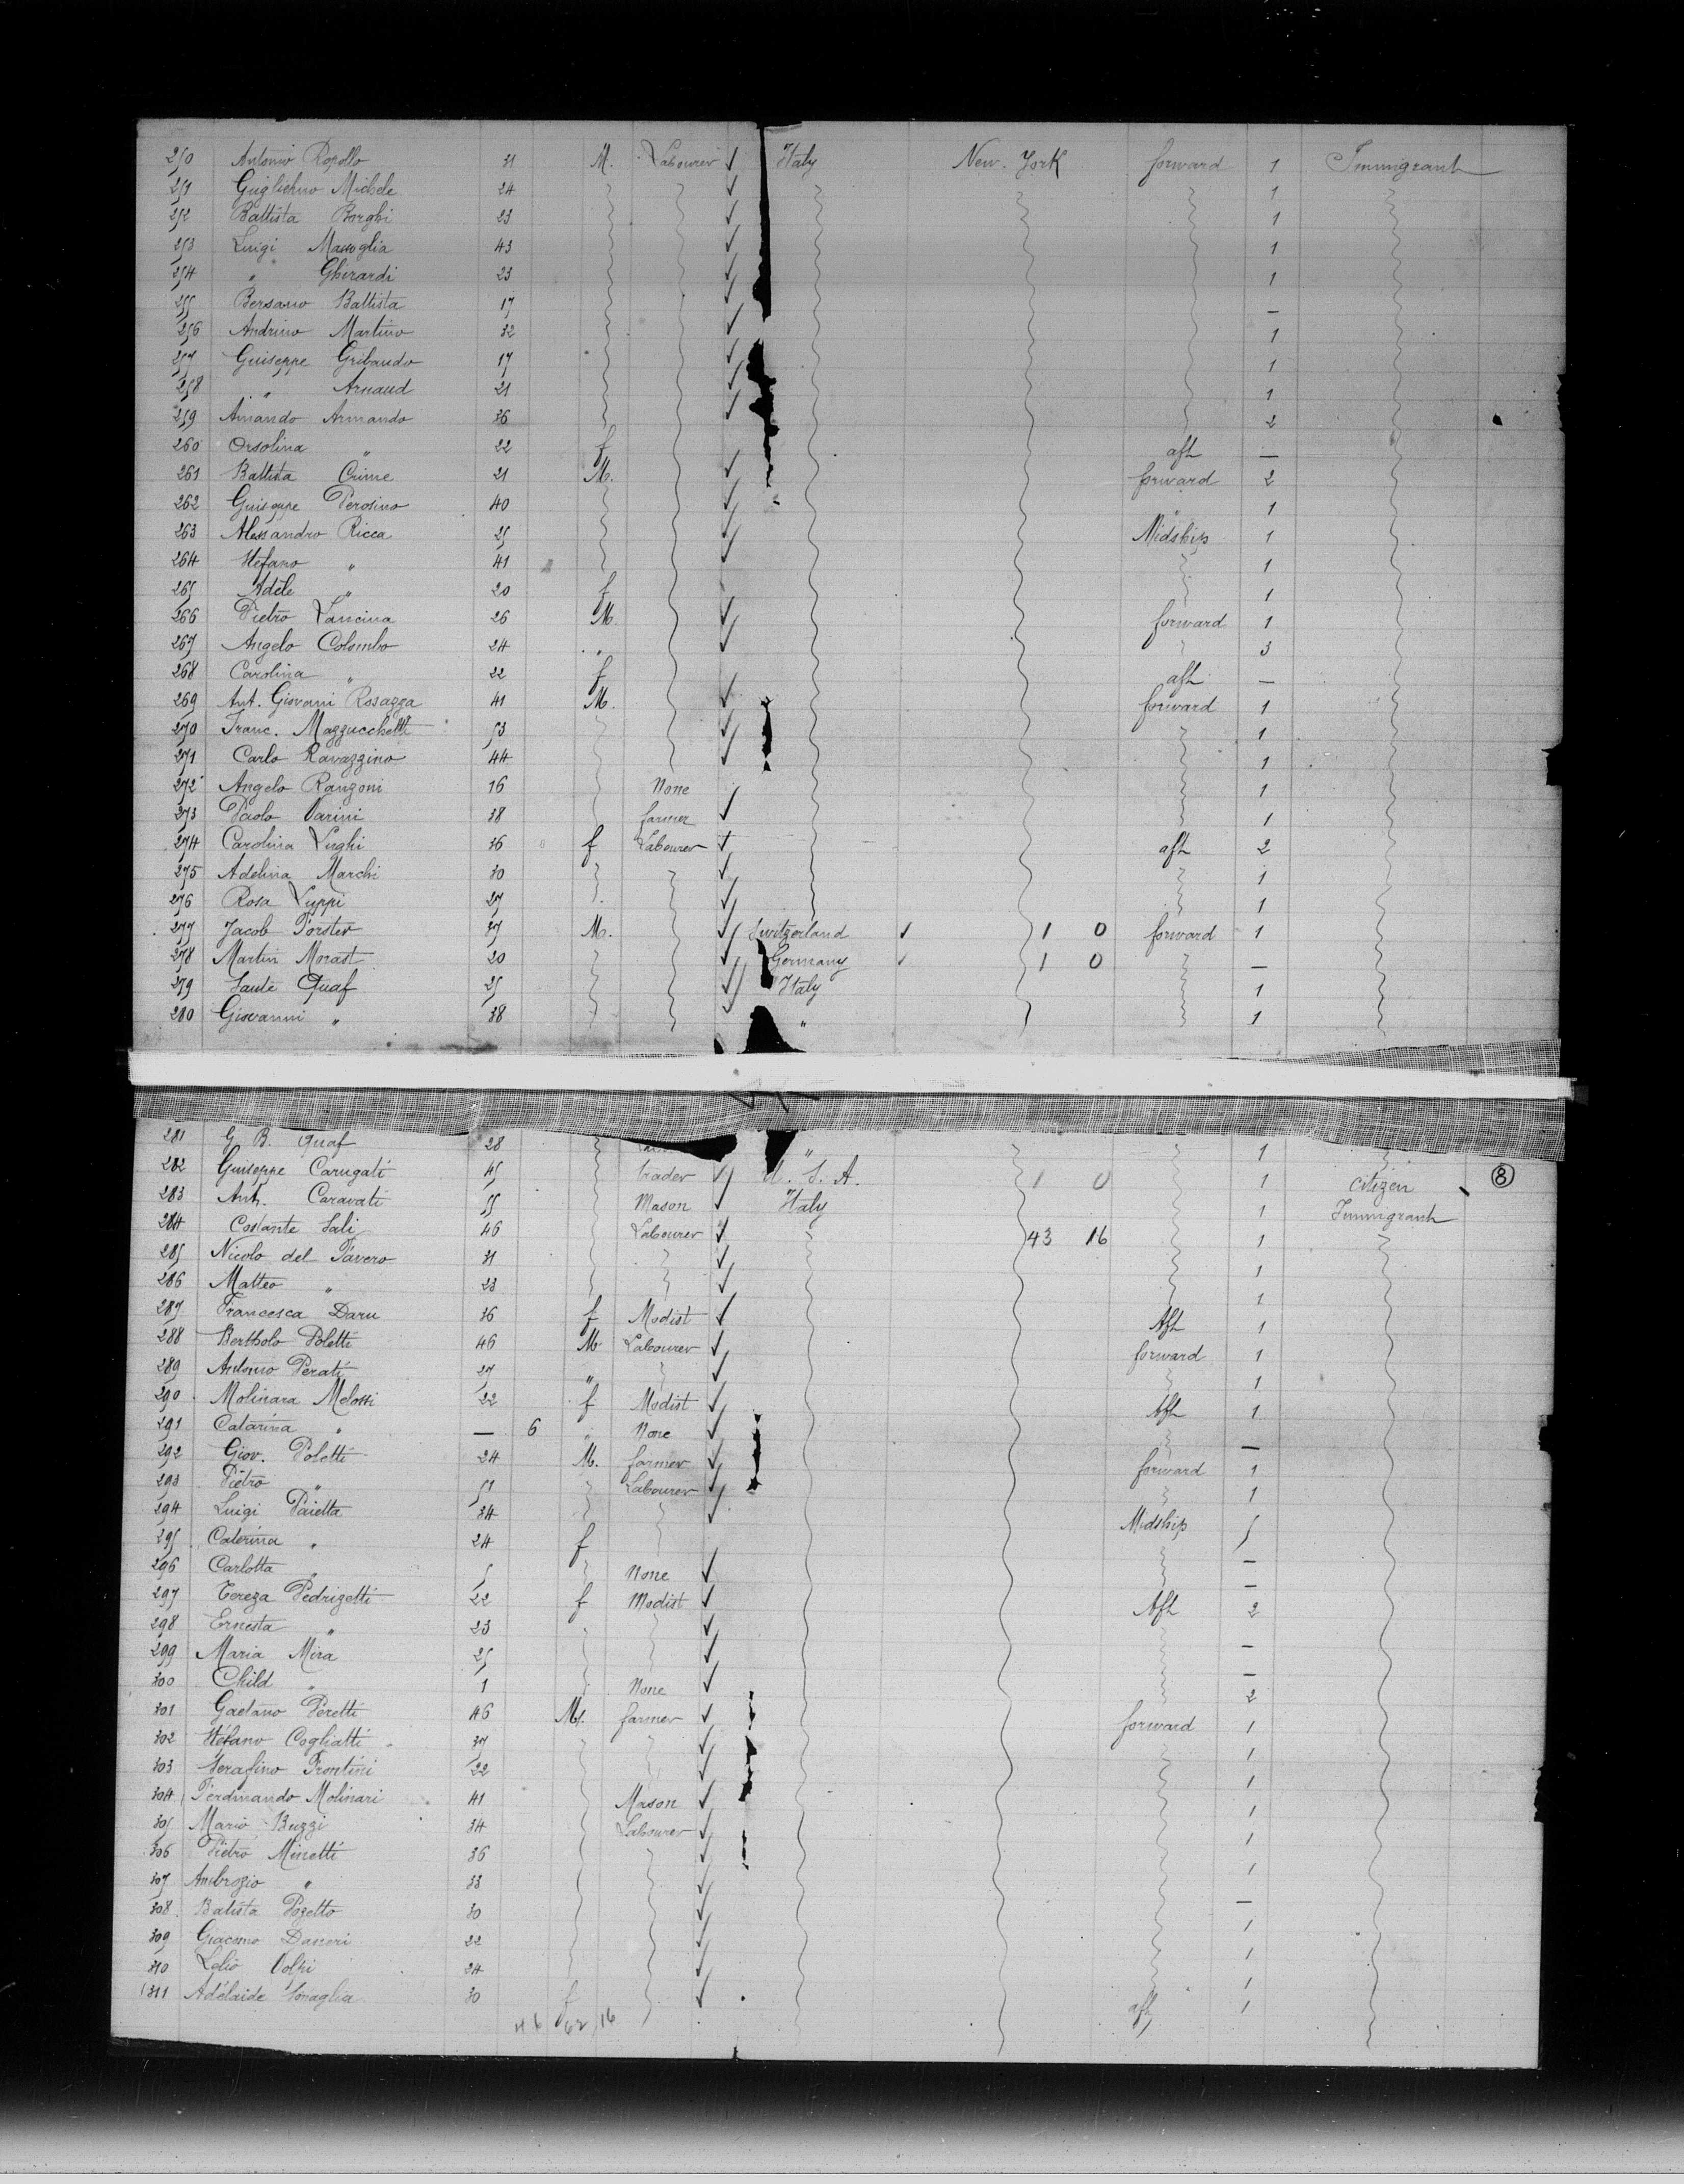 250 Antonio Ropollo 31 M. Labourer Italy New. York forward 1 Immigrant
251 Guglielmo Michele 24 1
252 Battista Borghi 23 1
253 Luigi Massoglia 43 1
254 " Ghirardi 23 1
255 Bersano Battista 17 —
256 Andrino Martino 32 1
257 Guiseppe Gribaudo 17 1
258 " Arnaud 21 1
259 Amando Armando 36 2
260 Orsolina " 22 f aft —
261 Battista Crime 21 M. forward 2
262 Guiseppe Perosino 40 " 1
263 Alessandro Ricca 25 Midship 1
264 Stefano " 41 1
265 Adele " 20 f 1
266 Pietro Lancina 26 M. forward 1
267 Angelo Colombo 24 " 3
268 Carolina " 22 f aft —
269 Ant. Giovani Rosazza 41 M. forward 1
270 Franc. Mazzucchetti 53 1
271 Carlo Ravazzino 44 1
272 Angelo Ranzoni 16 None 1
273 Paolo Varini 38 farmer 1
274 Carolina Vughi 36 f Labourer aft 2
275 Adelina Marchi 30 1
276 Rosa Luppi 27 1
277 Jacob Forster 37 M. Switzerland 1 0 forward 1
278 Martin Morast 20 Germany 1 0 —
279 Sante Quaf 25 Italy 1
280 Giovanni " 38 " 1
281 G. B. Quaf 28 " 1
282 Guiseppe Carugati 45 trader U. S. A. 1 0 1 citizen 8
283 Ant. Caravati 55 Mason Italy 1 Immigrant
284 Costante Sali 46 Labourer 43 16 1
285 Nicolo del Favero 31 1
286 Matteo " 23 1
287 Francesca Daru 36 f Modist Aft 1
288 Bertholo Poletti 46 M Labourer forward 1
289 Antonio Perati 27 " 1
290 Molinara Melossi 22 f Modist Aft 1
291 Catarina " — 6 " None —
292 Giov. Poletti 24 M. farmer forward 1
293 Pietro " 51 Labourer 1
294 Luigi Paietta 34 Midship 5
295 Caterina " 24 f —
296 Carlotta " 5 None —
297 Tereza Pedrizetti 22 f Modist Aft 2
298 Ernesta " 23 —
299 Maria Mira 25 —
300 Child " 1 None 2
301 Gaetano Peretti 46 M. farmer forward 1
302 Stefano Cogliatti 37 1
303 Serafino Frontini 22 1
304 Ferdinando Molinari 41 Mason 1
305 Mario Buzzi 34 Labourer 1
306 Pietro Minetti 36 1
307 Ambrozio " 33 —
308 Batista Pozetto 30 1
309 Giacomo Danieri 22 1
310 Lelio Volpi 24 1
311 Adelaide Sonaglia 30 f aft 1
46 62 16